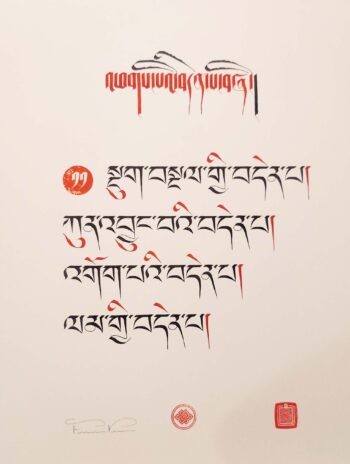 འཕགས་པའི་བདེན་པ་བཞི།
སྡུག་བསྔལ་གྱི་བདེན་པ།
ཀུན་འབྱུང་བའི་བདེན་པ།
འགོག་པའི་བདེན་པ།
ལམ་གྱི་བདེན་པ།